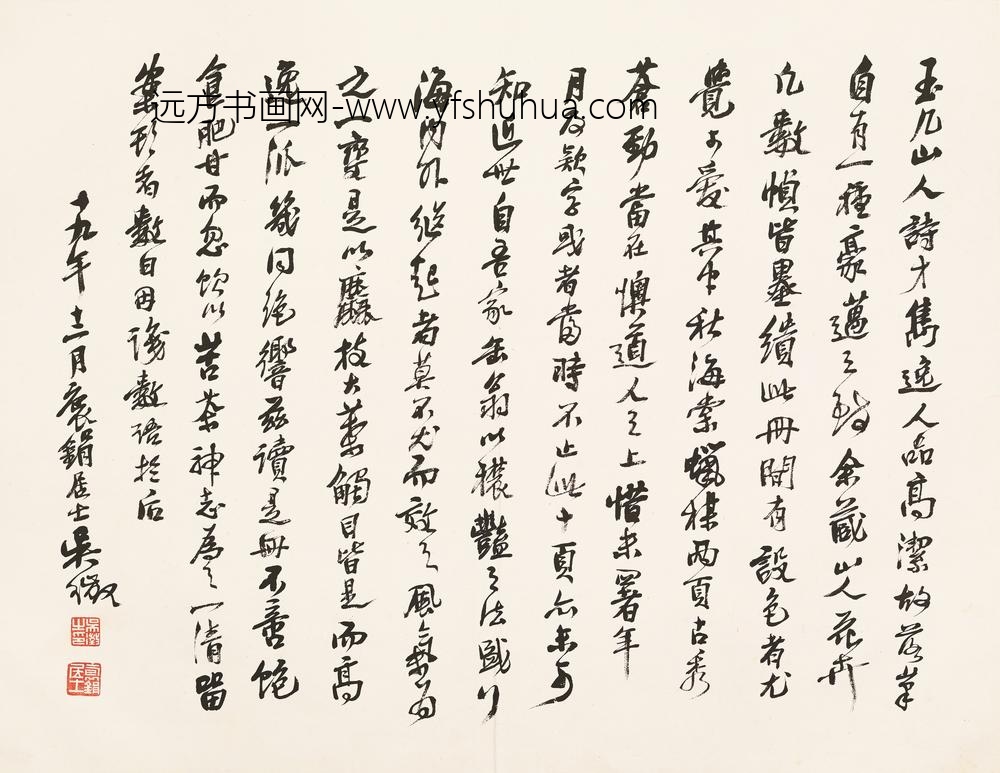 玉几山人詩才雋逸人品高潔故落筆
自有一種豪邁之致余藏山人花卉
凡數幀皆墨繢此冊間有設色者尤
覺可愛其中秋海棠蠟楳兩頁古秀
蒼勁當在懊道人之上惜未署年
月及欵字或者當時不止此十頁亦未可
知近世自吾家缶翁以穠豔之法盛行
海內外繼起者莫不尤而效之風氣為
之一變是以麤枝大葉觸目皆是而高
逸一派幾同絕響茲讀是冊不啻飽
食肥甘而忽飲以苦茶神志為之一清留
案頭者數日因識數語於后
十九年十二月褱鋗居士吳徵
吳徵之印
褱鋗居士
远方书画网-www.yfshuhua.com